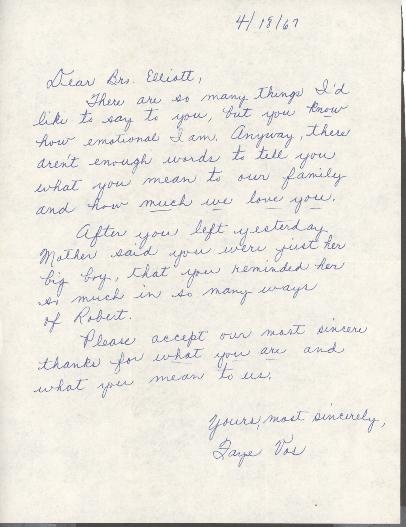 4/18/67
Dear Bro. Elliott,
There are so many things I'd
like to say to you, but you know
how emotional I am. Anyway, there
aren't enough words to tell you
what you mean to our family
and how much we love you.
After you left yesterday
Mother said you were just her
big boy, that you reminded her
so much in so many ways
of Robert.
Please accept our most sincere
thanks for what you are and
what you mean to us.
Yours most sincerely,
Faye Vos